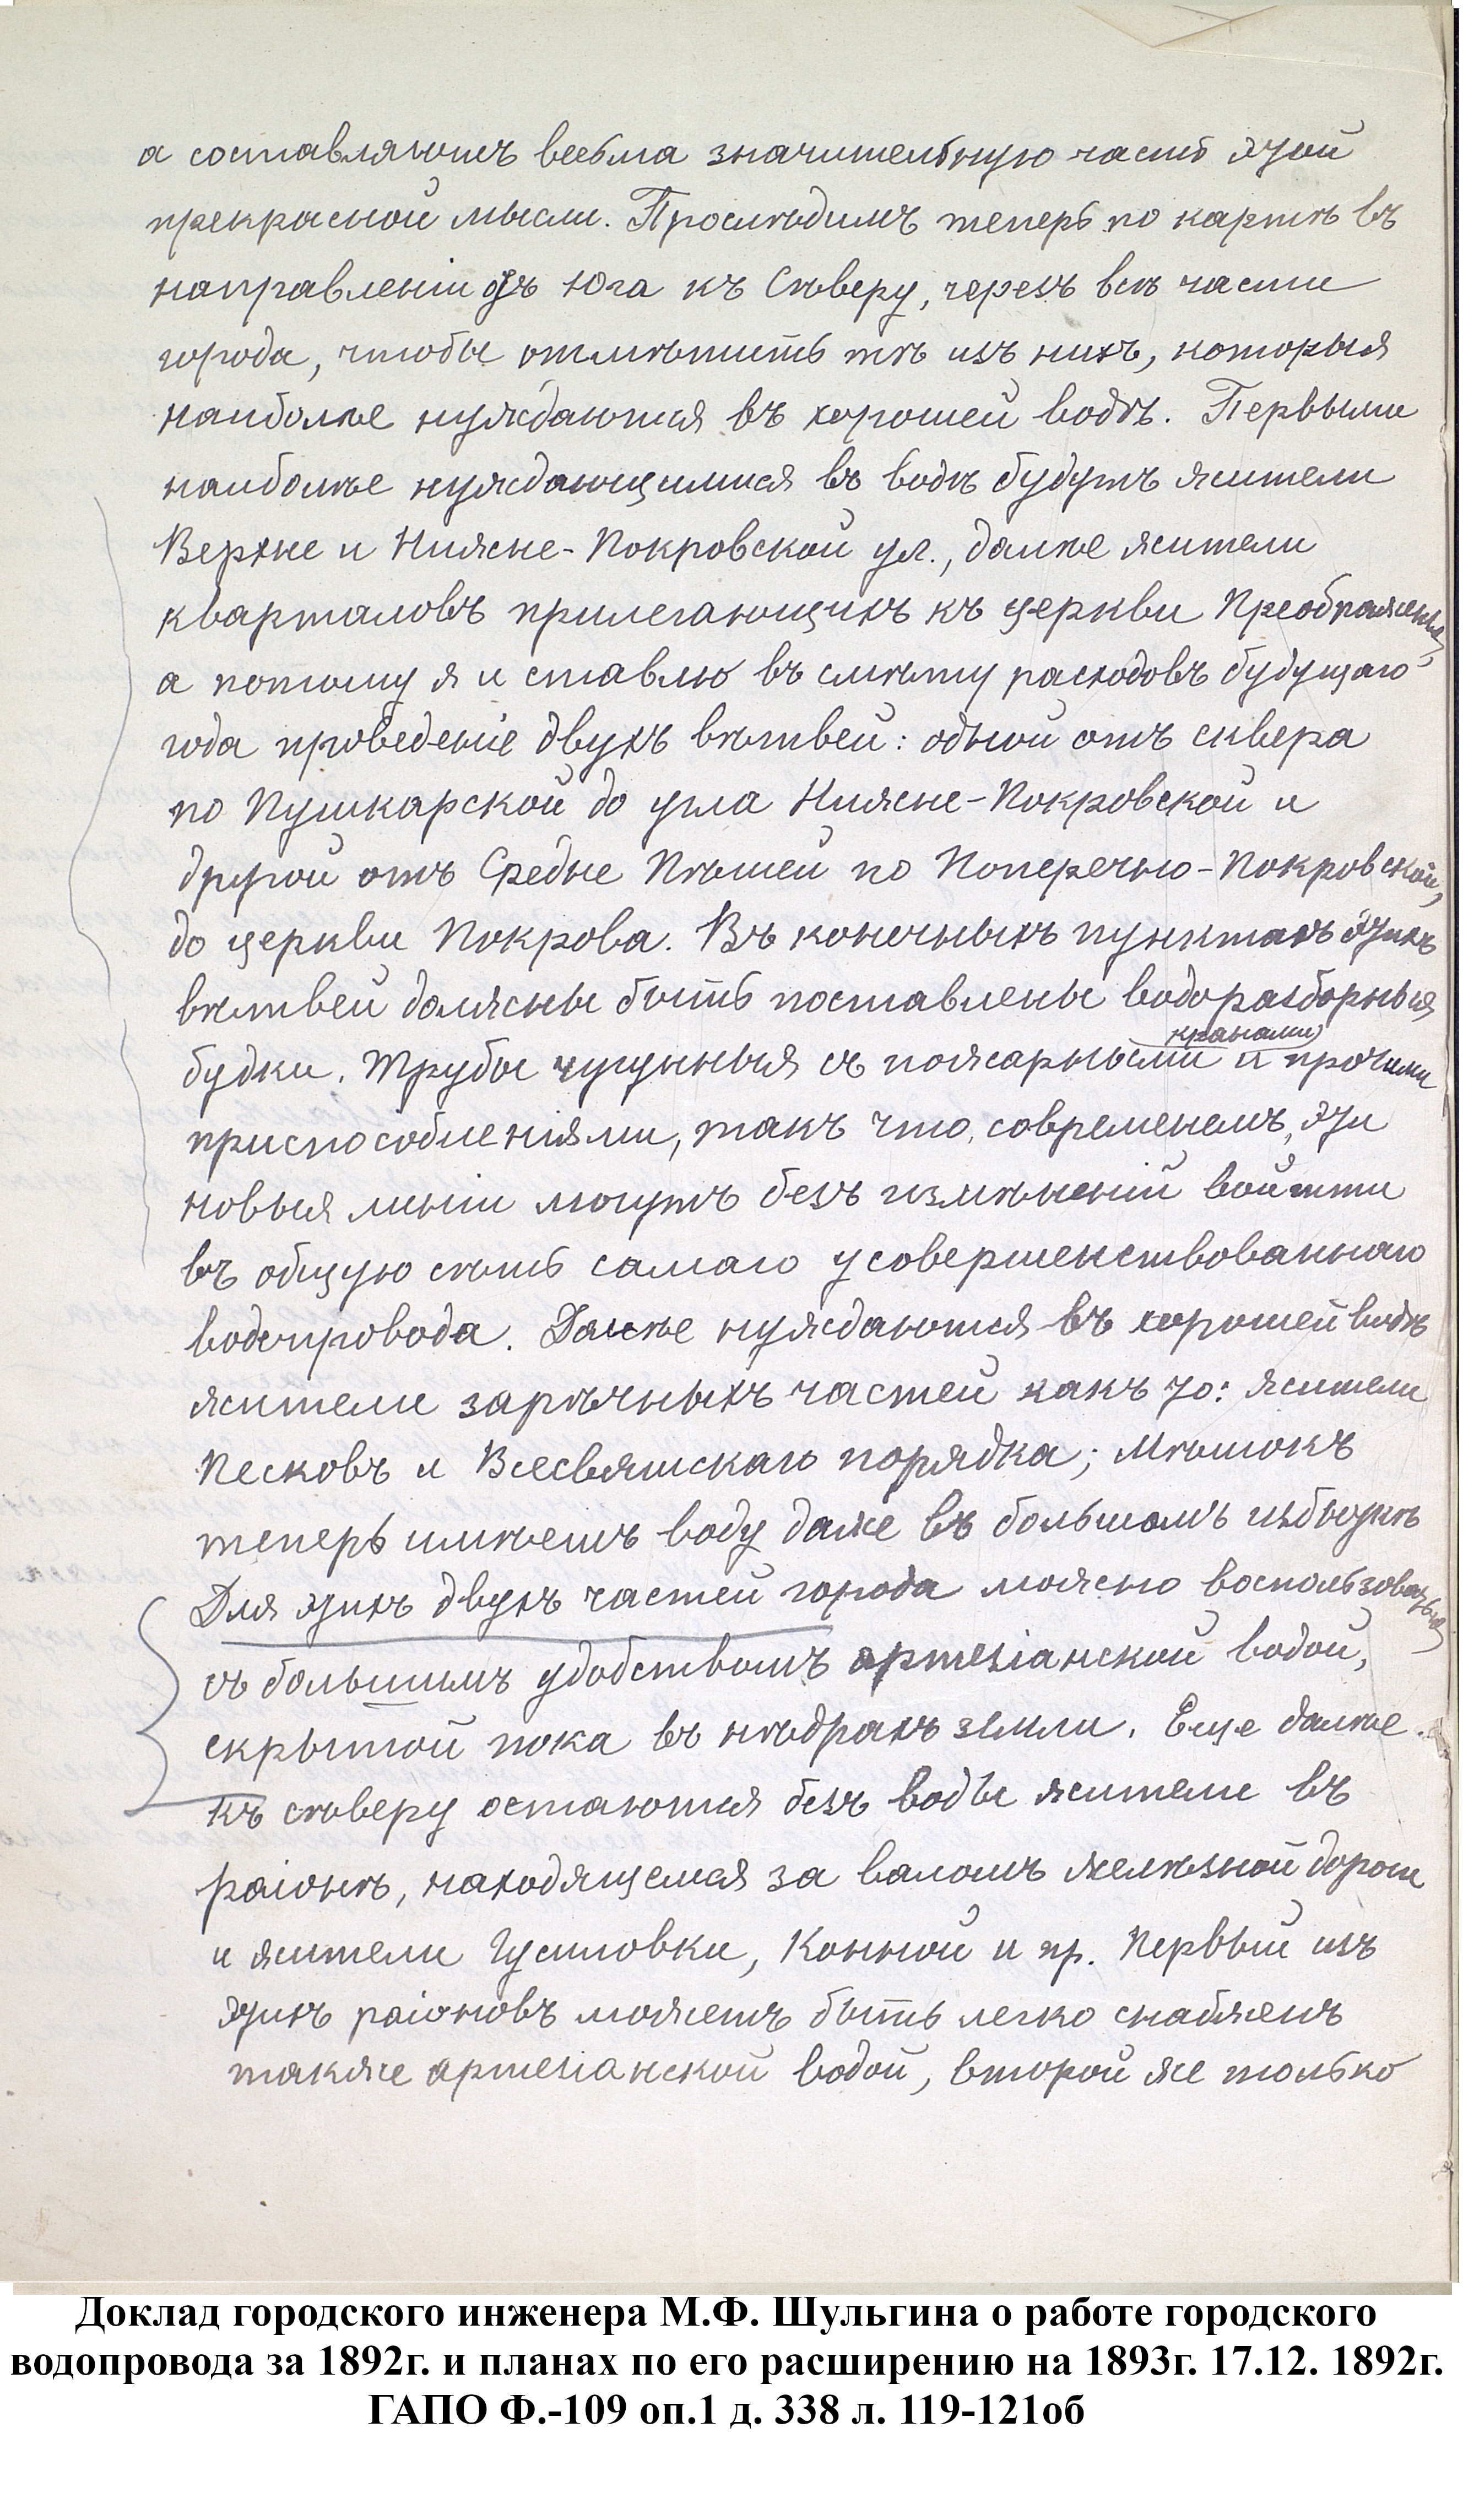 а составляютъ весьма значительную часть этой
прекрасной мысли. Прослѣдимъ теперь по картѣ въ
направленіи отъ Юга къ Сѣверу, черезъ всѣ части
города, чтобы отмѣтить тѣ изъ нихъ, которыя
наиболѣе нуждаются въ хорошей водѣ. Первыми
наиболѣе нуждающимися въ водѣ будутъ жители
Верхне и Нижне-Покровской ул., далѣе жители
кварталовъ прилегающихъ къ церкви Преображенія,
а потому я и ставлю въ смѣту расходовъ будущаго
года проведеніе двухъ вѣтвей: одной отъ сквера
по Пушкарской до угла Нижне-Покровской и
другой отъ Средне Пѣшей по Поперечно-Покровской,
до церкви Покрова. Въ конечныхъ пунктахъ этихъ
вѣтвей должны быть поставлены водоразборныя
кранами
будки. Трубы чугунныя съ пожарными и прочими
приспособленіями, такъ что, современемъ, эти
новыя линіи могутъ безъ измѣненій войтти
въ общую сѣть самаго усовершенствованнаго
водопровода. Далѣе нуждаются въ хорошей водѣ
жители зарѣчныхъ частей какъ то: жители
Песковъ и Всесвятскаго порядка; Мѣшокъ
теперь имѣетъ воду даже въ большомъ избыткѣ
Для этихъ двухъ частей города можно воспользоваться
съ большимъ удобствомъ артезіанской водой,
скрытой пока въ нѣдрахъ земли. Еще далѣе
къ сѣверу остаются безъ воды жители въ
раіонѣ, находящемся за валомъ желѣзной дороги
и жители Гусиловки, Конной и пр. Первый изъ
этихъ раіоновъ можетъ быть легко снабженъ
также артезіанской водой, второй же только
Доклад городского инженера М.Ф. Шульгина о работе городского
водопровода за 1892г. и планах по его расширению на 1893г. 17.12. 1892г.
ГАПО Ф.-109 оп.1 д. 338 л. 119-121об